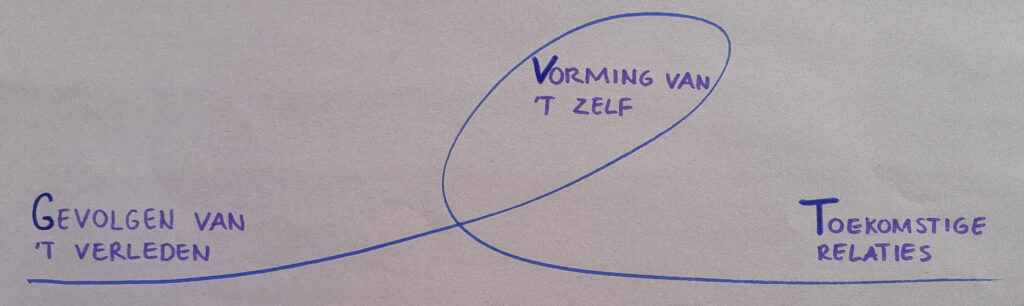 Vorming van
't zelf
Gevolgen van
't verleden
Toekomstige
relaties